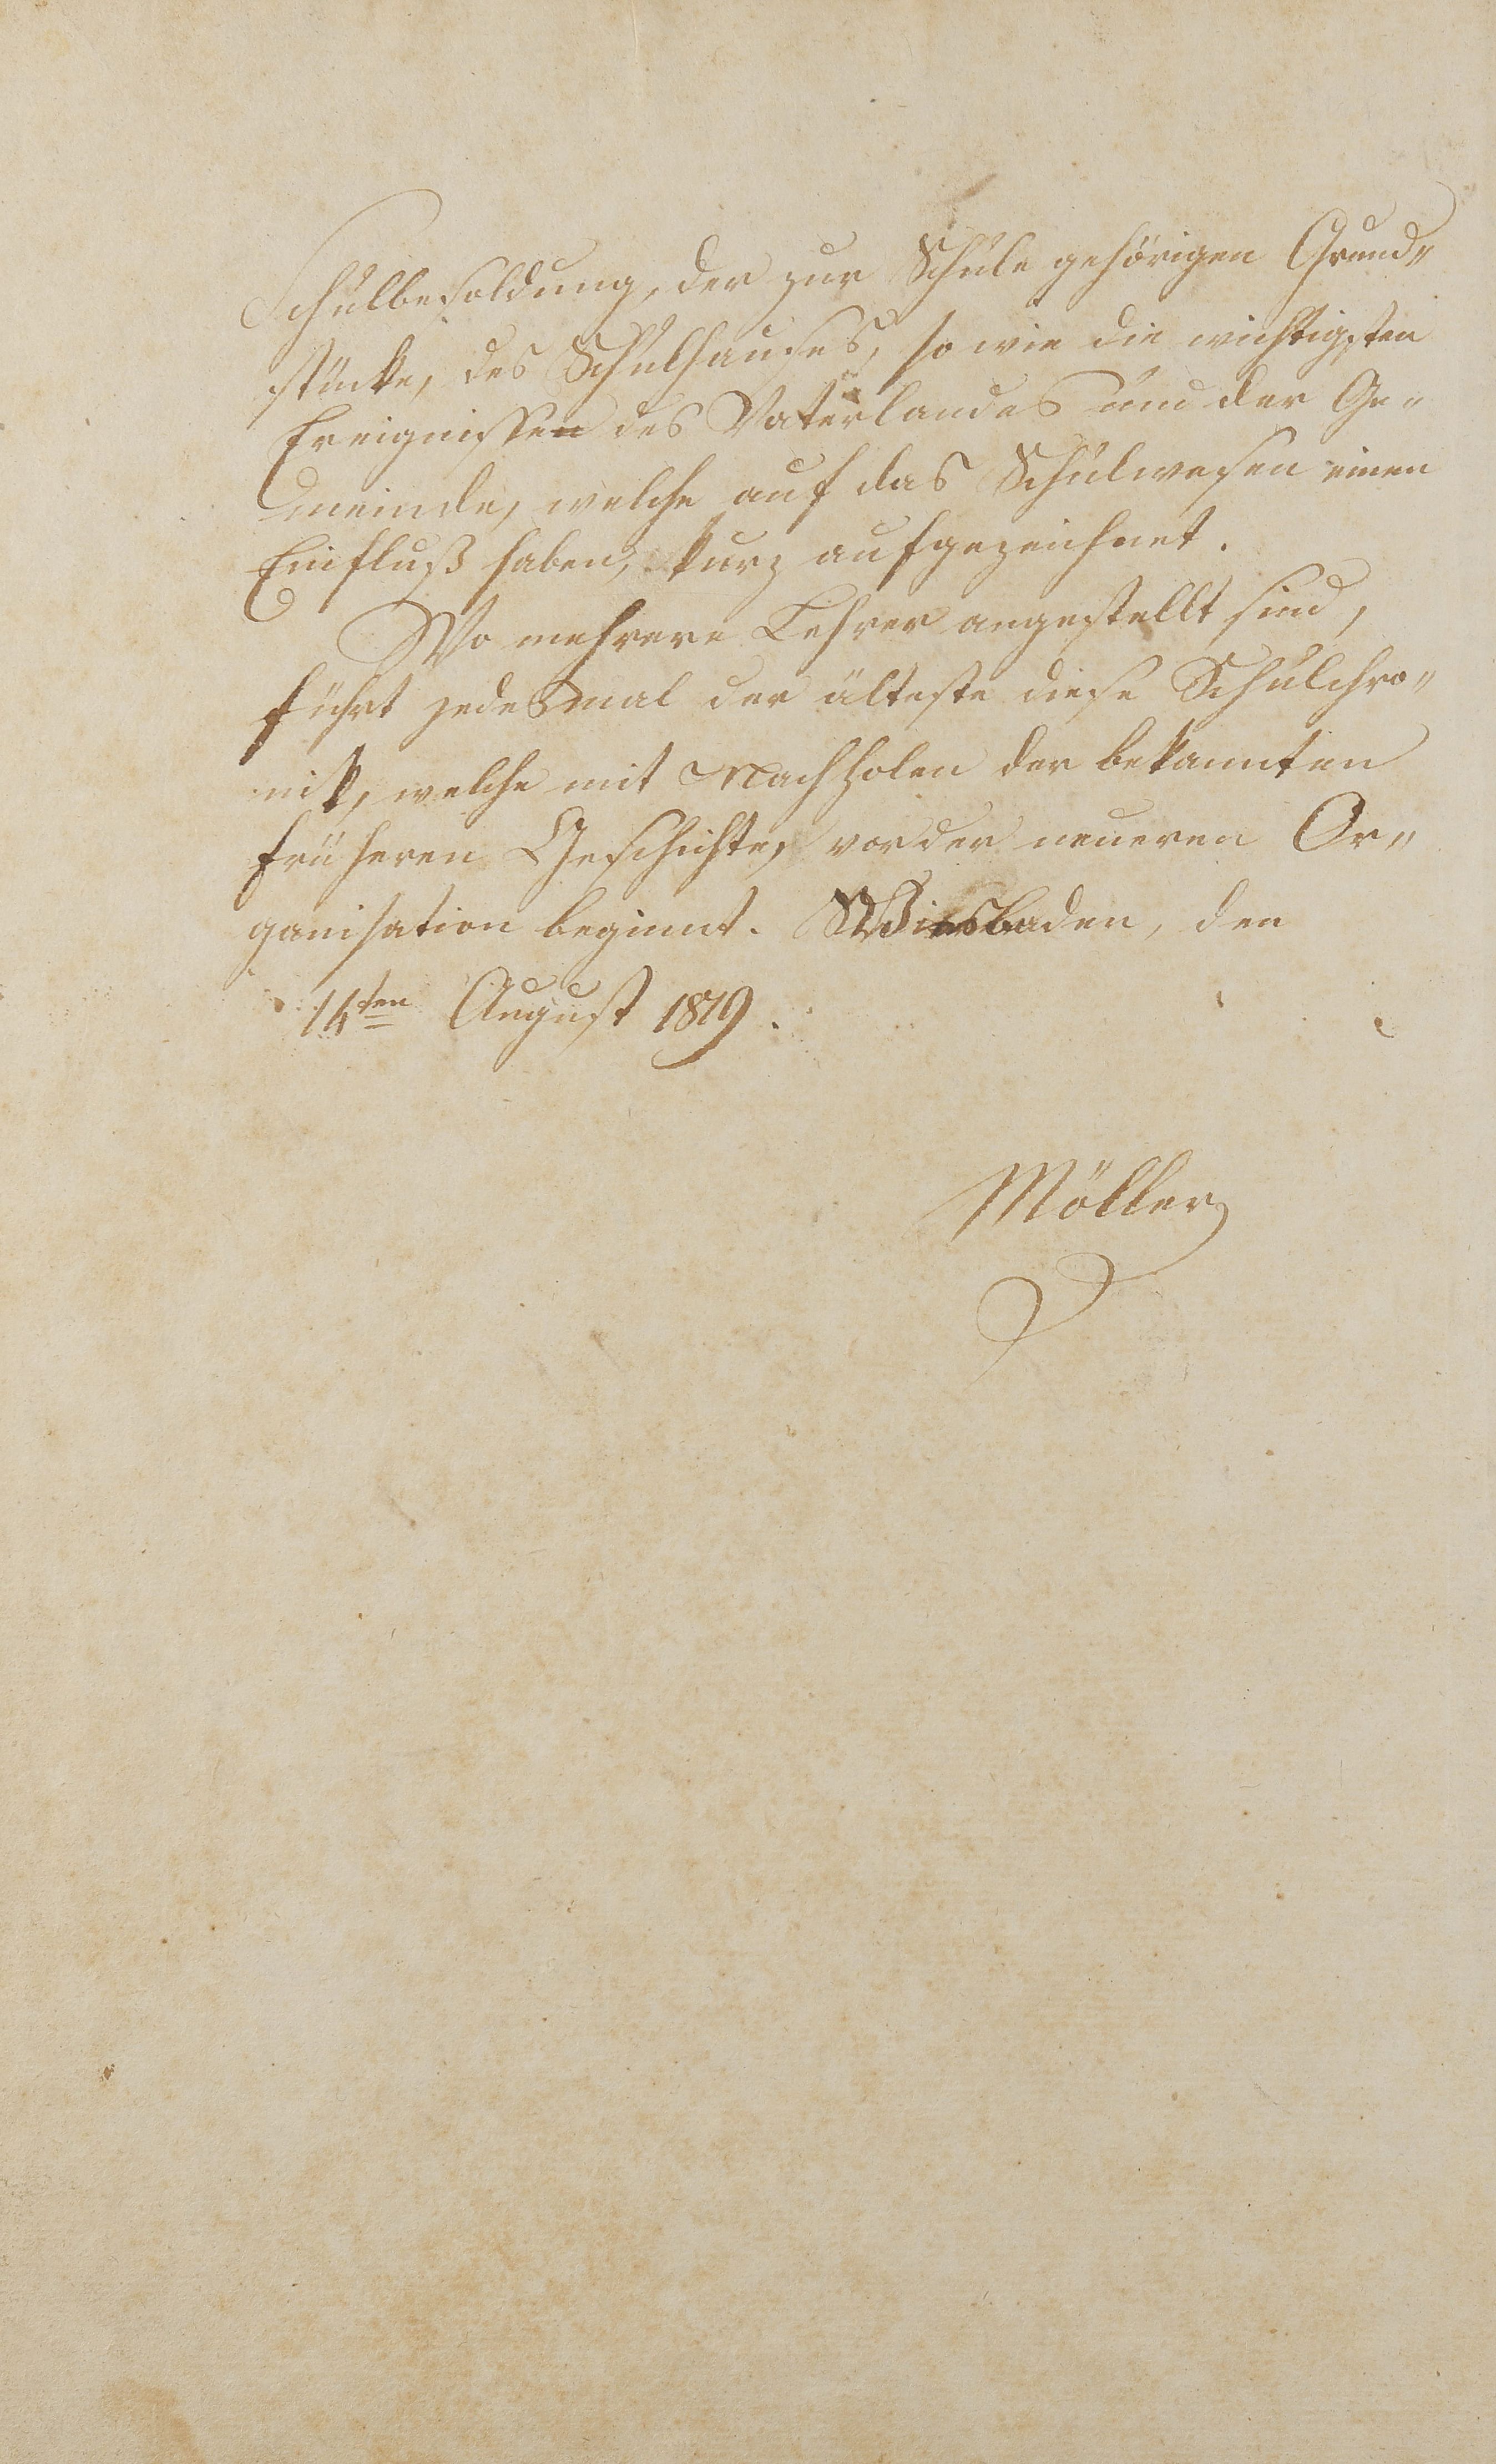 Schulbesoldung, der zur Schule gehörigen Grund„
stücke, des Schulhauses, so wie die wichtigsten
Ereignissen des Vaterlandes und der Ge„
meinde, welche auf das Schulwesen einen
Einfluß haben, kurz aufgezeichnet.
Wo mehrere Lehrer angestellt sind,
führt jedesmal der älteste diese Schulchro„
nik, welche mit Nachholen der bekannten
früheren Geschichte, vor der neueren Or„
ganisation beginnt. Wiesbaden, den
14ten August 1819.
Möller